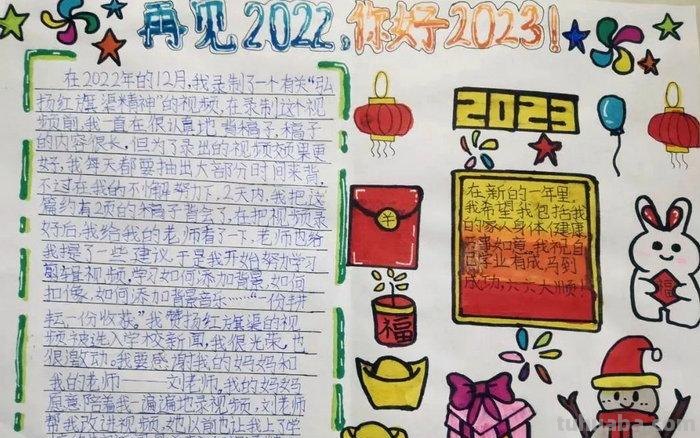 再见2022,你好2023!
在2022年的12月,我录制了一个有关“弘
扬红旗渠精神”的视频,在录制这个视
频前,我一直在很认真地背稿子,稿子
的内容很长,但为了录出的视频效果更
好,我每天都要抽出大部分时间来背,
不过在我的不懈努力下,2天内,我把这
篇约有2页的稿子背会了,在把视频录
好后,我给我的老师看了一下,老师也给
我提了一些建议,于是我开始努力学习
剪辑视频,学习如何添加背景,如何
扣像,如何添加背景音乐……“一份耕
耘一份收获。”我赞扬红旗渠的视
频被选入学校新闻,我很光荣,也
很激动。我要感谢我的妈妈和
我的老师——刘老师,我的妈妈
愿意陪着我一遍遍地录视频,刘老师
帮我改进视频,她以前也让我上了学
2023
在新的一年里,
我希望我包括我
的家人身体健康
万事如意。我祝自
己学业有成,马到
成功,六六大顺!
¥
福
福
tuhuaba.com